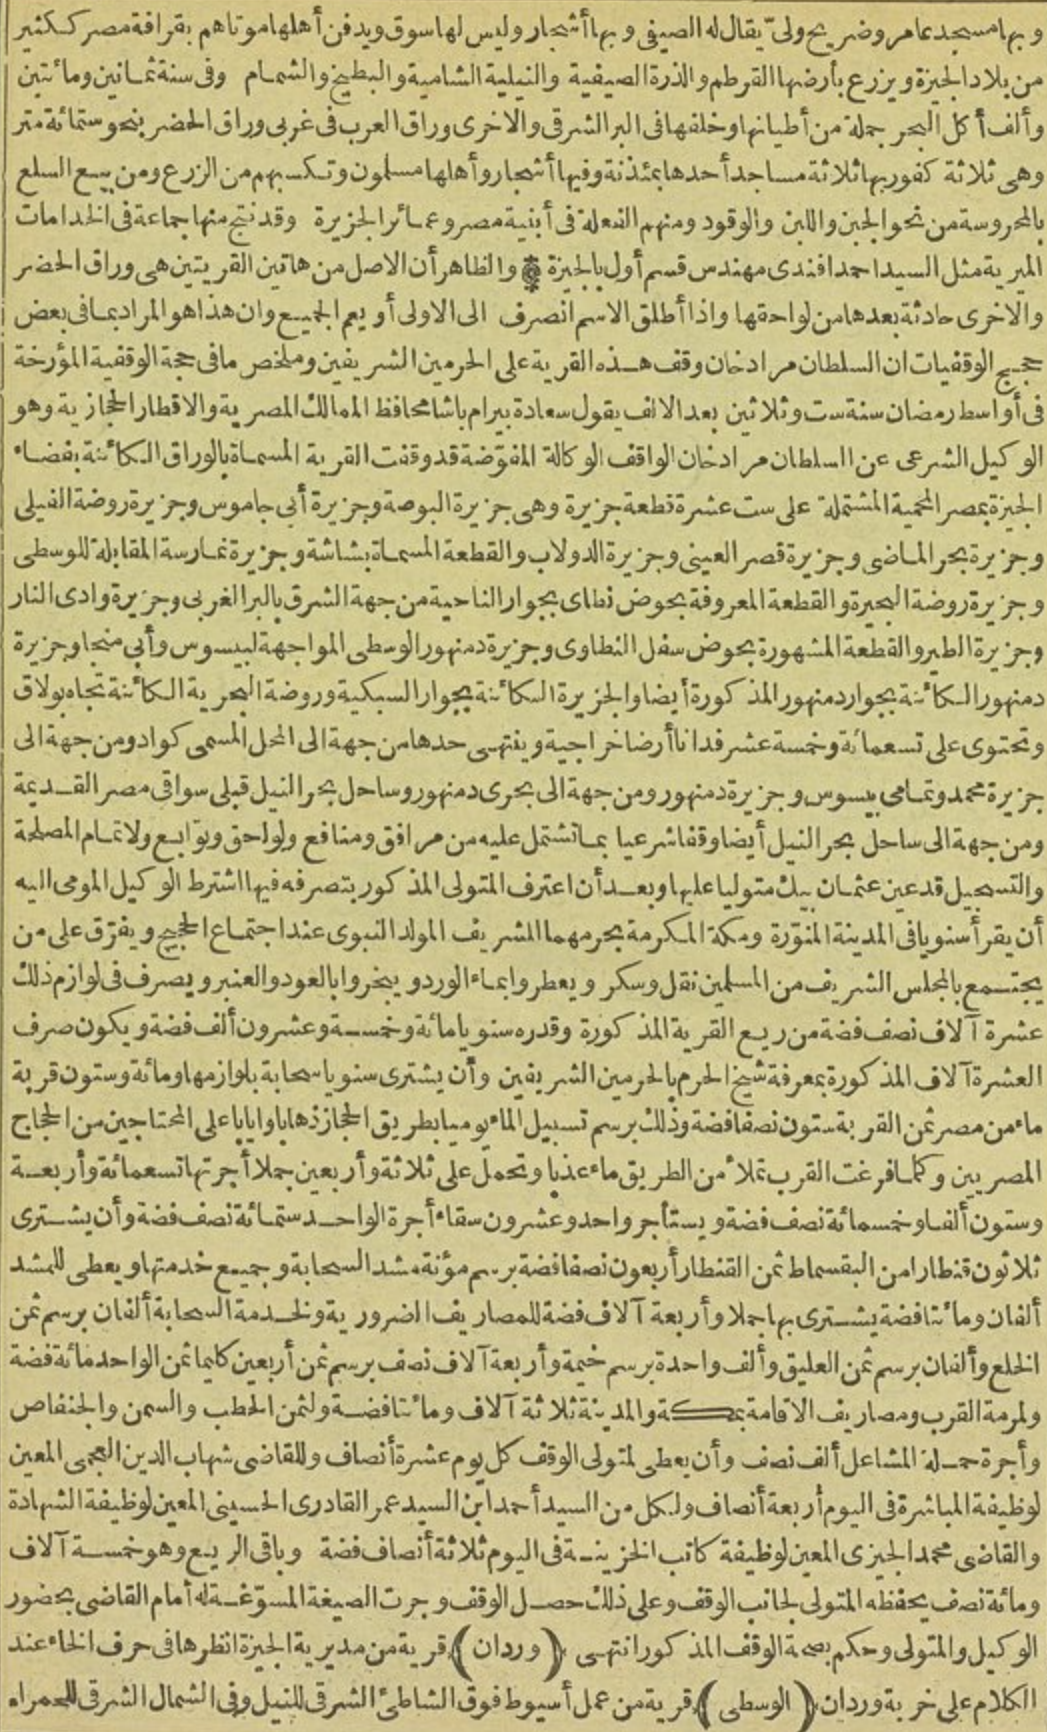 وبها مسجد عامر وضريح ولىّ يقال له الصيفى وبها أشجار وليس لها سوق ويدفن أهلها موتاهم بقرافة مصر ككثير
من بلاد الجيزة ويزرع بأرضها القرطم والذرة الصيفية والنيلية الشامية والبطيخ والشمام وفى سنة ثمانين ومائتين
وألف أكل البحر جملة من أطيانها وخلفها فى البر الشرقى والاخرى وراق العرب فى غربى وراق الحضر بنحو ستمائة متر
وهى ثلاثة كفور بها ثلاثة مساجد أحدها بمئذنة وفيها أشجار وأهلها مسلمون وتكسبهم من الزرع ومن بيع السلع
بالمحروسة من نحو الجبن واللبن والوقود ومنهم الفعلة فى أبنية مصر وعمائر الجزيرة وقد نتج منها جماعة فى الخدامات
الميرية مثل السيد احمد افندى مهندس قسم أول بالجيزة والظاهر أن الاصل من هاتين القريتين هى وراق الحضر
والاخرى حادثة بعدها من لواحقها واذا أطلق الاسم انصرف الى الاولى أو يعم الجميع وان هذا هو المراد بما فى بعض
حجج الوقفيات ان السلطان مراد خان وقف هذه القرية على الحرمين الشريفين وملخص ما فى حجة الوقفية المؤرخة
فى أواسط رمضان سنة ست وثلاثين بعد الالف يقول سعادة بيرام باشا محافظ الممالك المصرية والاقطار الحجازية وهو
الوكيل الشرعى عن السلطان مراد خان الواقف الوكالة المفوّضة قد وقفت القرية المسماة بالوراق الكائنة بفضاء
الجيزة بمصر المحمية المشتملة على ست عشرة قطعة جزيرة وهى جزيرة البوصة وجزيرة أبى جاموس وجزيرة روضة الفيلى
وجزيرة بحر الماضى وجزيرة قصر العينى وجزيرة الدولاب والقطعة المسماة بشاشة وجزيرة غمارسة المقابلة للوسطى
وجزيرة روضة البحيرة والقطعة المعروفة بحوض نطاى بجوار الناحية من جهة الشرق بالبر الغربى وجزيرة وادى النار
وجزيرة الطير والقطعة المشهورة بحوض سفل النطاوى وجزيرة دمنهور الوسطى المواجهة لبيسوس وأبى منجا وجزيرة
دمنهور الكائنة بجوار دمنهور المذكورة أيضا والجزيرة الكائنة بجوار السبكية وروضة البحرية الكائنة تجاه بولاق
وتحتوى على تسعمائة وخمسة عشر فدانا أرضا خراجية وينتهى حدها من جهة الى المحل المسمى كواد ومن جهة الى
جزيرة محمد وتمامى بيسوس وجزيرة دمنهور ومن جهة الى بحرى دمنهور وساحل بحر النيل قبلى سواقى مصر القديمة
ومن جهة الى ساحل بحر النيل أيضا وقفا شرعيا بما تشتمل عليه من مرافق ومنافع ولواحق وتوابع ولاتمام المصلحة
والتسجيل قد عين عثمان بيك متوليا عليها وبعد أن اعترف المتولى المذكور بتصرفه فيها اشترط الوكيل المومى اليه
أن يقرأ سنويا فى المدينة المنوّرة ومكة المكرمة بحرمهما الشريف المولد النبوى عند اجتماع الحجيج ويفرّق على من
يجتمع بالمجلس الشريف من المسلمين نقل وسكر ويعطروا بماء الورد ويبخروا بالعود والعنبر ويصرف فى لوازم ذلك
عشرة آلاف نصف فضة من ريع القرية المذكورة وقدره سنويا مائة وخمسة وعشرون ألف فضة ويكون صرف
العشرة آلاف المذكورة بمعرفة شيخ الحرم بالحرمين الشريفين وأن يشترى سنويا سحابة بلوازمها ومائة وستون قربة
ماء من مصر ثمن القربة ستون نصفا فضة وذلك برسم تسبيل الماء يوميا بطريق الحجاز ذهابا وايابا على المحتاجين من الحجاج
المصريين وكلما فرغت القرب تملأ من الطريق ماء عذبا وتحمل على ثلاثة وأربعين جملا أجرتها تسعمائة وأربعة
وستون ألفا وخمسمائة نصف فضة ويستأجر واحد وعشرون سقاء أجرة الواحد ستمائة نصف فضة وأن يشترى
ثلاثون قنطارا من البقسماط ثمن القنطار أربعون نصفا فضة برسم مؤنة مشد السحابة وجميع خدمتها ويعطى للمشد
ألفان ومائتا فضة يشترى بها جملا وأربعة آلاف فضة للمصاريف الضرورية ولخدمة السحابة ألفان برسم ثمن
الخلع وألفان برسم ثمن العليق وألف واحدة برسم خيمة وأربعة آلاف نصف برسم ثمن أربعين كايما ثمن الواحد مائة فضة
ولمرمة القرب ومصاريف الاقامة بمكة والمدينة ثلاثة آلاف ومائتا فضة ولثمن الحطب والسمن والجنفاص
وأجرة حملة المشاعل ألف نصف وأن يعطى لمتولى الوقف كل يوم عشرة أنصاف وللقاضى شهاب الدين العجمى المعين
لوظيفة المباشرة فى اليوم أربعة أنصاف ولكل من السيد أحمد ابن السيد عمر القادرى الحسينى المعين لوظيفة الشهادة
والقاضى محمد الجيزى المعين لوظيفة كاتب الخزينة فى اليوم ثلاثة أنصاف فضة وباقى الريع وهو خمسة آلاف
ومائة نصف يحفظه المتولى لجانب الوقف وعلى ذلك حصل الوقف وجرت الصيغة المسوّغة له أمام القاضى بحضور
الوكيل والمتولى وحكم بصحة الوقف المذكور انتهى (وردان) قرية من مديرية الجيزة انظرها فى حرف الخاء عند
الكلام على خربة وردان (الوسطى) قرية من عمل أسيوط فوق الشاطئ الشرقى للنيل وفى الشمال الشرقى للحمراء